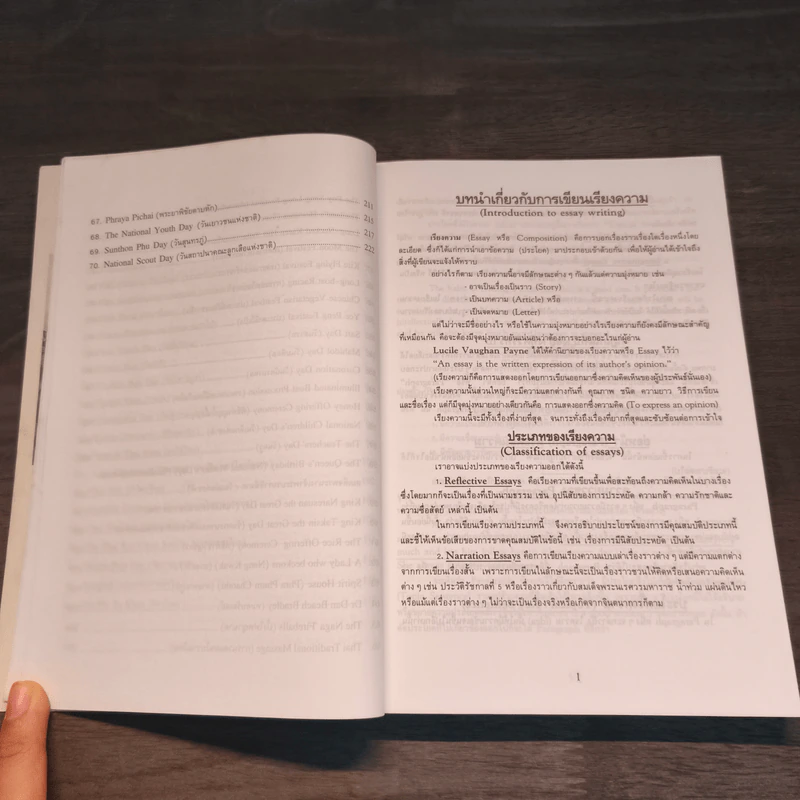 67. Phraya Pichai (พระยาพิชัยดาบหัก) 211
68. The National Youth Day (วันเยาวชนแห่งชาติ) 215
69. Sunthon Phu Day (วันสุนทรภู่) 217
70. National Scout Day (วันสถาปนาคณะลูกเสือแห่งชาติ) 222
บทนำเกี่ยวกับการเขียนเรียงความ
(Introduction to essay writing)
เรียงความ (Essay หรือ Composition) คือการบอกเรื่องราวเรื่องใดเรื่องหนึ่งโดย
ละเอียด ซึ่งก็ได้แก่การนำเอาข้อความ (ประโยค) มาประกอบเข้าด้วยกัน เพื่อให้ผู้อ่านได้เข้าใจถึง
สิ่งที่ผู้เขียนจะแจ้งให้ทราบ
อย่างไรก็ตาม เรียงความนี้อาจมีลักษณะต่าง ๆ กันแล้วแต่ความมุ่งหมาย เช่น
- อาจเป็นเรื่องเป็นราว (Story)
- เป็นบทความ (Article) หรือ
- เป็นจดหมาย (Letter)
แต่ไม่ว่าจะมีชื่ออย่างไร หรือใช้ในความมุ่งหมายอย่างไรเรียงความก็ยังคงมีลักษณะสำคัญ
ที่เหมือนกัน คือจะต้องมีจุดมุ่งหมายอันแน่นอนว่าต้องการจะบอกอะไรแก่ผู้อ่าน
Lucile Vaughan Payne ได้ให้คำนิยามของเรียงความหรือ Essay ไว้ว่า
"An essay is the written expression of its author's opinion."
(เรียงความก็คือการแสดงออกโดยการเขียนออกมาซึ่งความคิดเห็นของผู้ประพันธ์นั่นเอง)
เรียงความนั้นส่วนใหญ่ก็จะมีความแตกต่างกันที่ คุณภาพ ชนิด ความยาว วิธีการเขียน
และชื่อเรื่อง แต่ก็มีจุดมุ่งหมายอย่างเดียวกันคือ การแสดงออกซึ่งความคิด (To express an opinion)
เรียงความนี้จะมีทั้งเรื่องที่ง่ายที่สุด - จนกระทั่งถึงเรื่องที่ยากที่สุดและซับซ้อนต่อการเข้าใจ
ประเภทของเรียงความ
(Classification of essays)
เราอาจแบ่งประเภทของเรียงความออกได้ดังนี้
1. Reflective Essays คือเรียงความที่เขียนขึ้นเพื่อสะท้อนถึงความคิดเห็นในบางเรื่อง
ซึ่งโดยมากก็จะเป็นเรื่องที่เป็นนามธรรม เช่น อุปนิสัยของการประหยัด ความกล้า ความรักชาติและ
ความซื่อสัตย์ เหล่านี้ เป็นต้น
ในการเขียนเรียงความประเภทนี้ จึงควรอธิบายประโยชน์ของการมีคุณสมบัติประเภทนี้
และชี้ให้เห็นข้อเสียของการขาดคุณสมบัติในข้อนี้ เช่น เรื่องการมีนิสัยประหยัด เป็นต้น
2. Narration Essays คือการเขียนเรียงความแบบเล่าเรื่องราวต่าง ๆ แต่มีความแตกต่าง
จากการเขียนเรื่องสั้น เพราะการเขียนในลักษณะนี้จะเป็นเรื่องราวชวนให้คิดหรือเสนอความคิดเห็น
ต่าง ๆ เช่น ประวัติรัชกาลที่ 5 หรือเรื่องราวเกี่ยวกับสมเด็จพระนเรศวรมหาราช น้ำท่วม แผ่นดินไหว
หรือแม้แต่เรื่องราวต่าง ๆ ไม่ว่าจะเป็นเรื่องจริงหรือเกิดจากจินตนาการก็ตาม
1